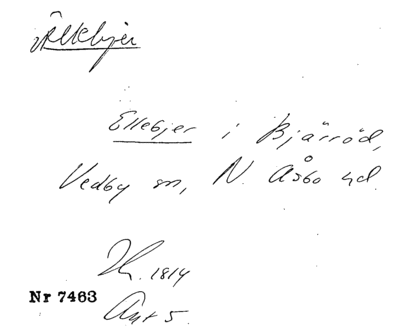 Ällebjer
Ellebjer i Bjärröd,
Vedby sn, N. Åsbo hd.
1814
Nr 7463
Akt 5.